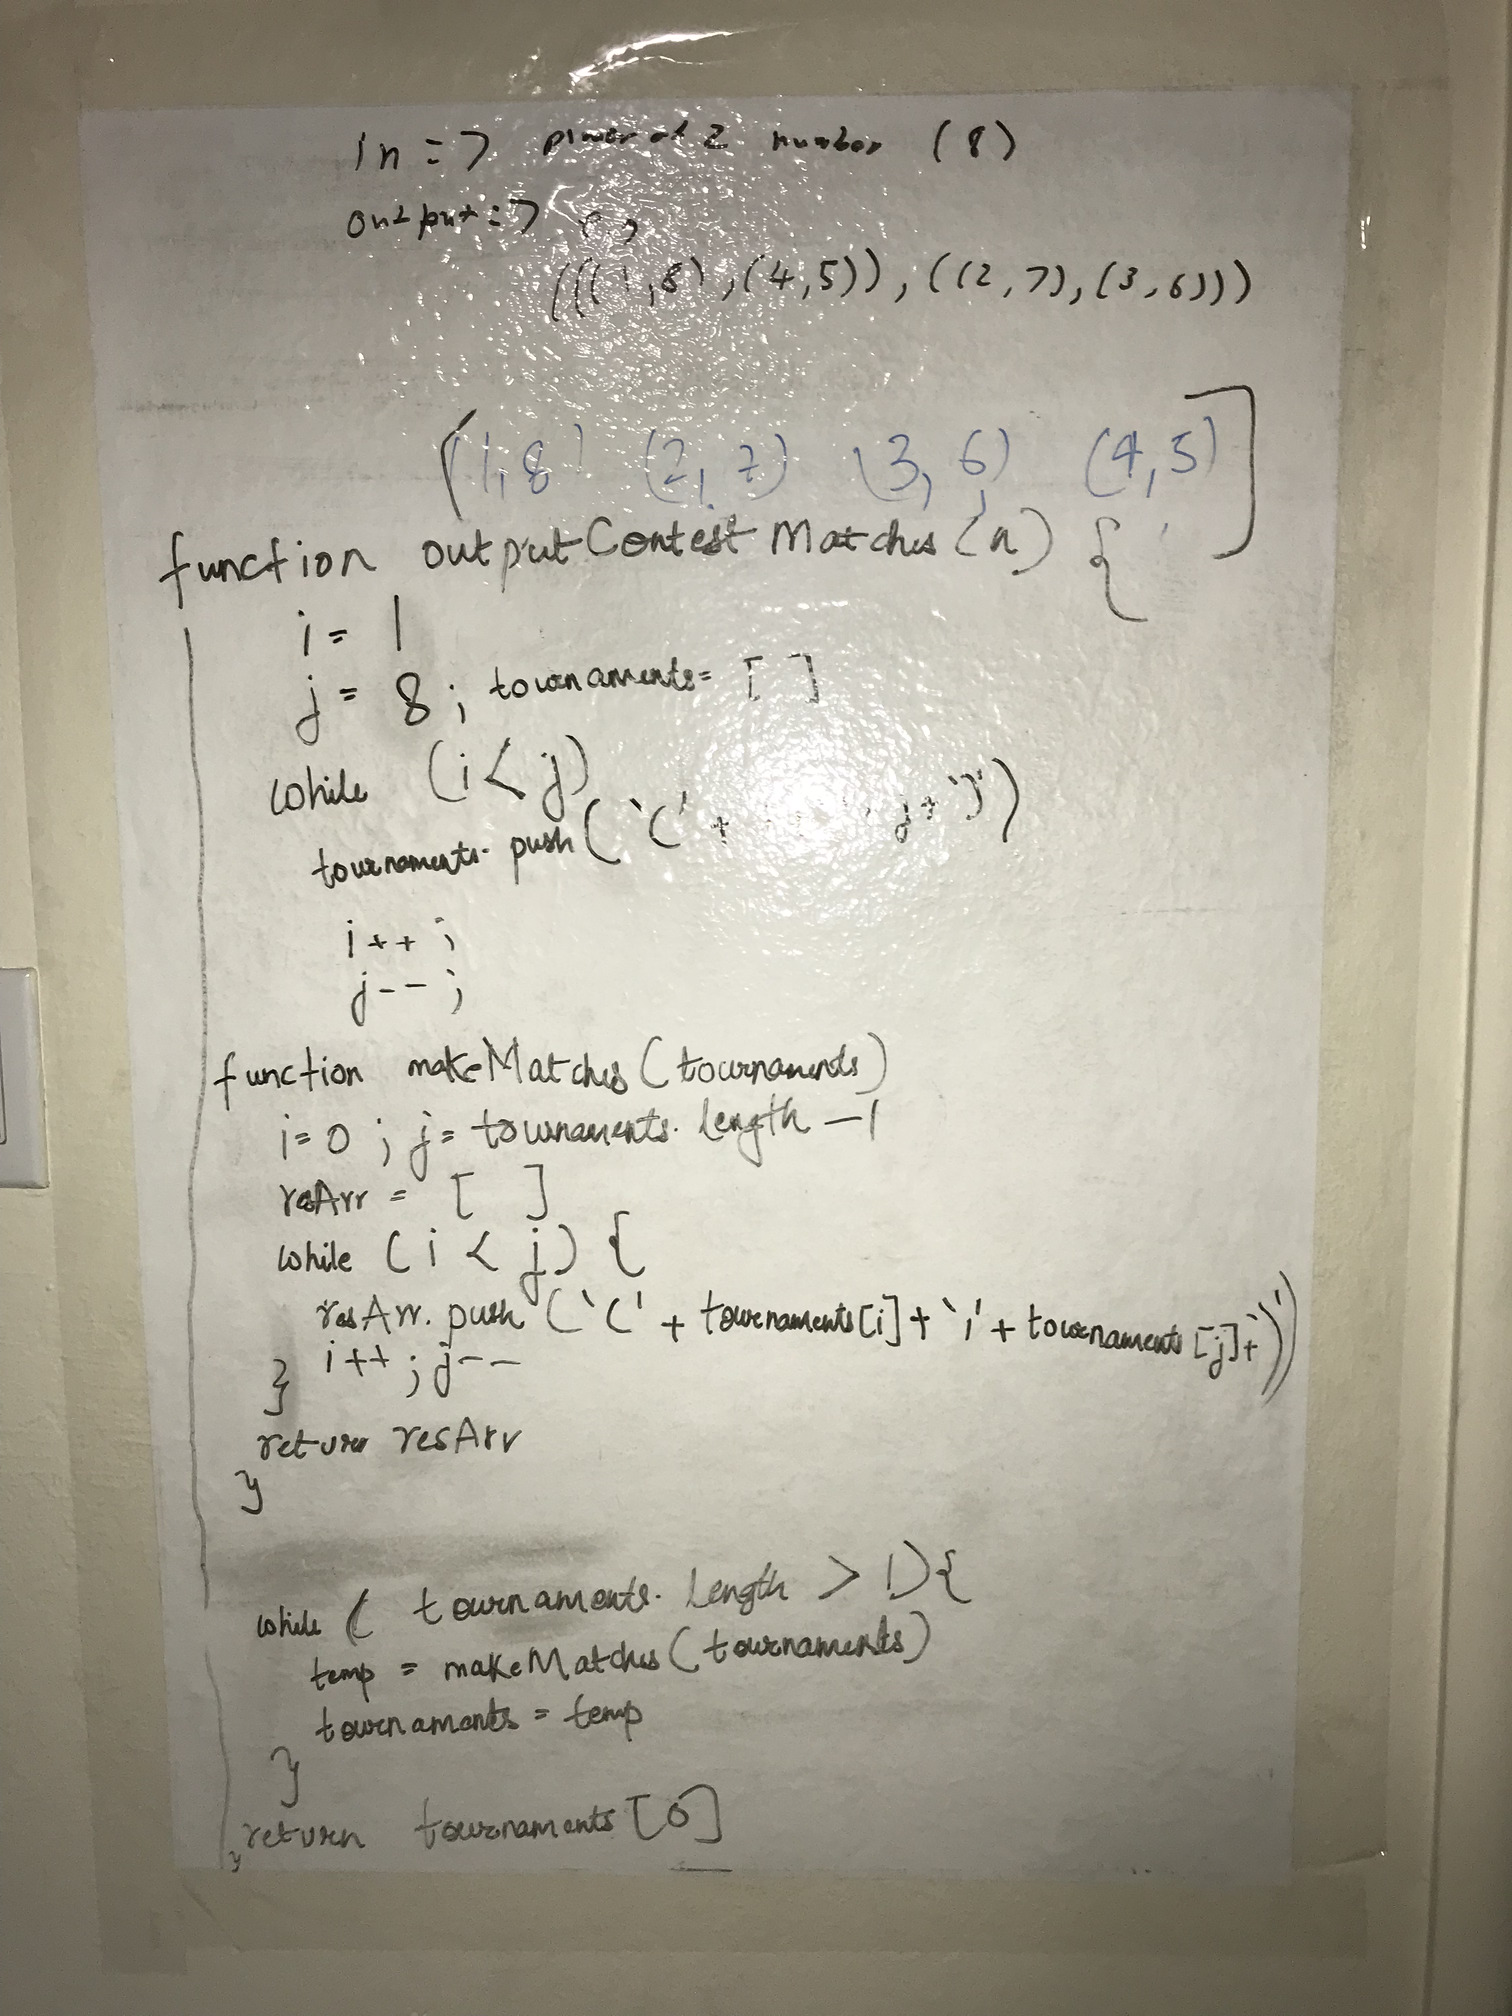 in => power of 2 number (8)
output =>
(((1,8),(4,5)),((2,7),(3,6)))
[(1,8) (2,7) (3,6) (4,5)]
function outputContestMatches(n) {
i = 1
j = 8; tournaments = [ ]
while (i < j)
tournaments.push(`(' + j + `)')
i++;
j--;
function makeMatches(tournaments)
i=0; j = tournaments.length -1
resArr = [ ]
while (i < j) {
resArr.push(`(' + tournaments[i] + `,' + tournaments[j] + `)')
i++; j--
}
return resArr
}
while ( tournaments.length > 1) {
temp = makeMatches(tournaments)
tournaments = temp
}
return tournaments[0]
}